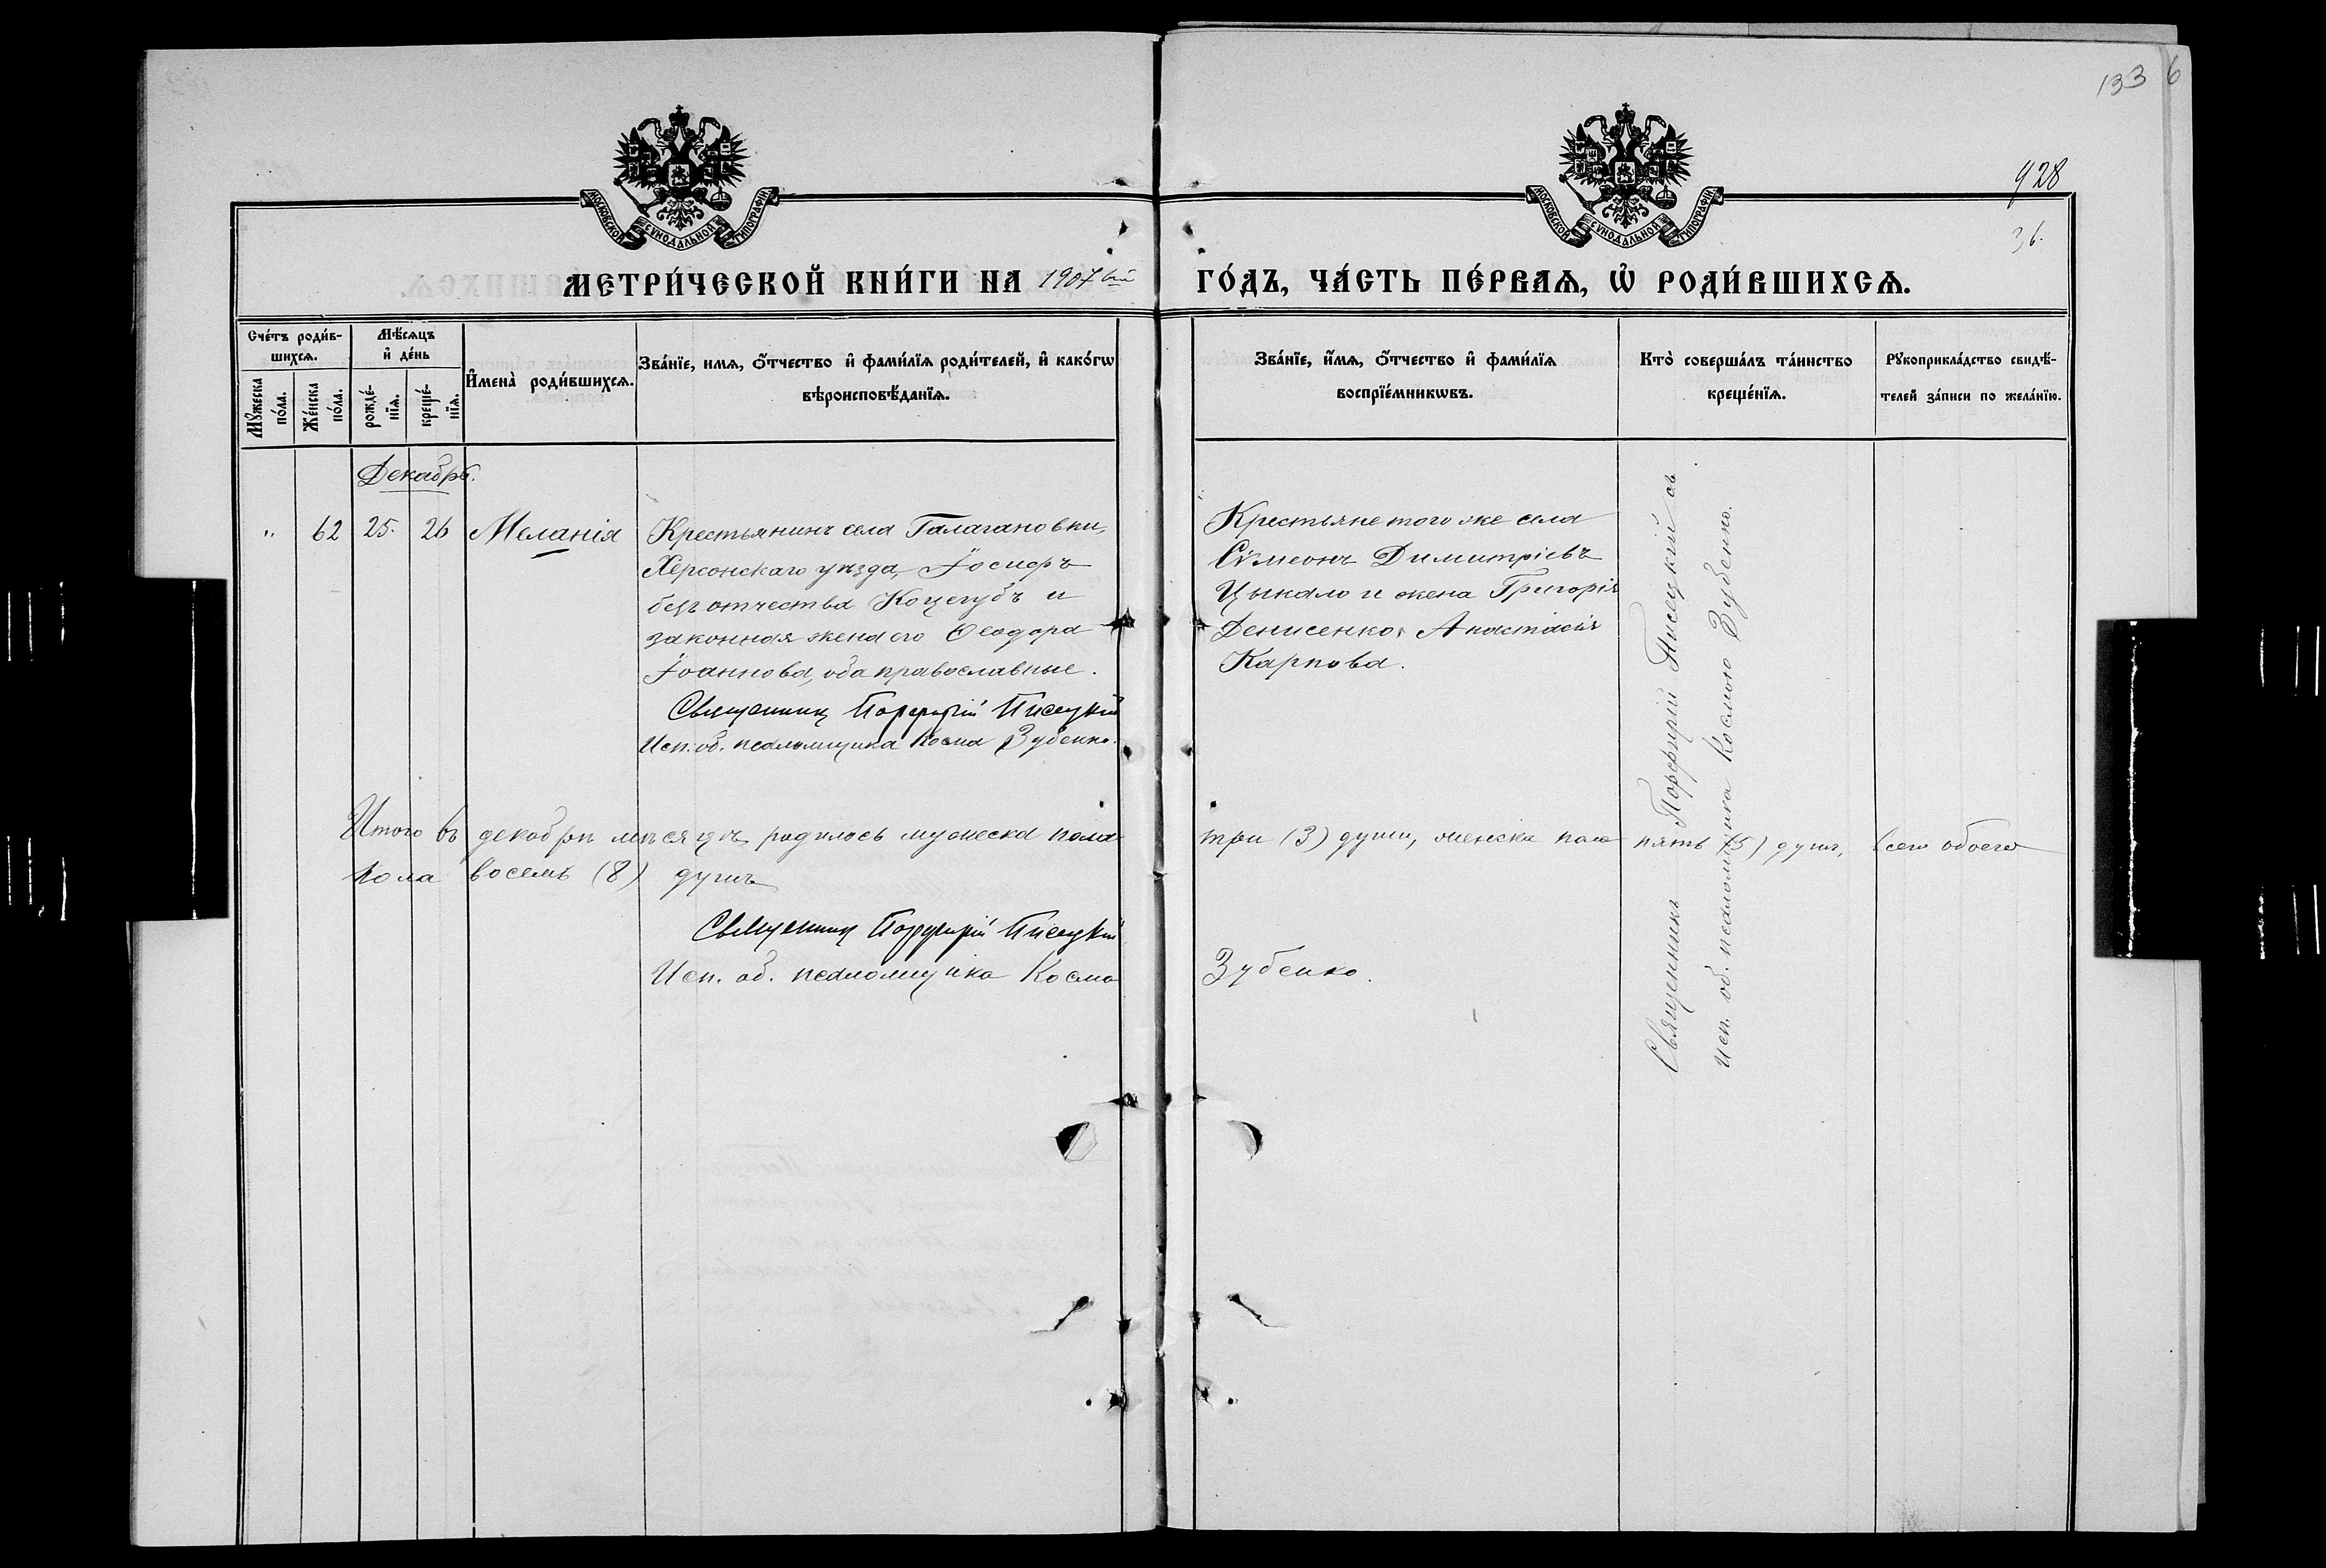 133 6
928
36.
МОСКОВСКОЙ СУНОДАЛЬНОЙ ТИПОГРАФІИ
МОСКОВСКОЙ СУНОДАЛЬНОЙ ТИПОГРАФІИ
МЕТРИ́ЧЕСКОЙ КНИ́ГИ НА 1907 ГО́ДЪ, ЧА́СТЬ ПЕ́РВАѦ, Ѡ҆ РОДИ́ВШИХСѦ.
Сче́тъ роди́в-
шихсѧ.
Мꙋ́жеска по́ла.
Же́нска по́ла.
Мѣ́сѧцъ
и҆ де́нь
рожде́-
нїѧ.
креще́-
нїѧ.
И҆мена̀ роди́вшихсѧ.
Зва́нїе, имѧ, о҆́тчество и҆ фами́лїѧ роди́телей, и҆ како́гѡ
вѣроисповѣ́данїѧ.
Зва́нїе, и҆́мѧ, о҆́тчество и҆ фами́лїѧ
воспрїе́мникѡвъ.
Кто̀ соверша́лъ та́инство
креще́нїѧ.
Рꙋкоприкла́дство свидѣ́-
телей за́писи по жела́нїю.
Декабрь.
" 62 25. 26 Меланія
Крестьянинъ села Галагановки,
Херсонскаго уѣзда, Іосифъ
безъ отчества Коцегубъ и
законная жена его Ѳеодора
Іоаннова, оба православные.
Священникъ Порфирій Писецкій
Исп. об. псаломщика Косма Зубенко.
Крестьяне того же села
Сѵмеонъ Димитріевъ
Цыкало и жена Григорія
Денисенко, Анастасія
Карпова.
Священникъ Порфирій Писецкій съ
Исп. об. псаломщика Космою Зубенко.
Итого въ декабрѣ мѣсяцѣ родилось мужеска пола три (3) души, женска пола пять (5) душъ, всего обоего
пола восемь (8) душъ
Священникъ Порфирій Писецкій
Исп. об. псаломщика Косма Зубенко.